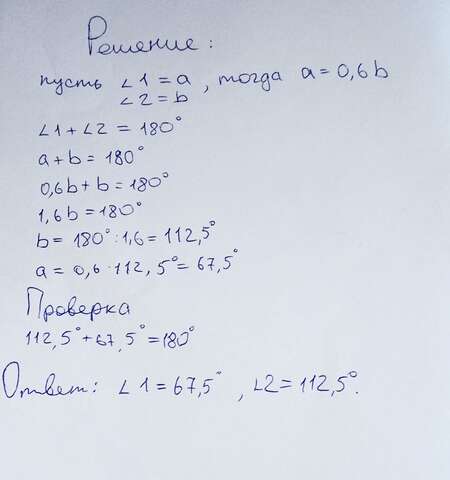 Решение:
пусть ∠1 = a, тогда a = 0,6b
∠2 = b
∠1 + ∠2 = 180°
a + b = 180°
0,6b + b = 180°
1,6b = 180°
b = 180° : 1,6 = 112,5°
a = 0,6 · 112,5° = 67,5°
Проверка
112,5° + 67,5° = 180°
Ответ: ∠1 = 67,5°, ∠2 = 112,5°.